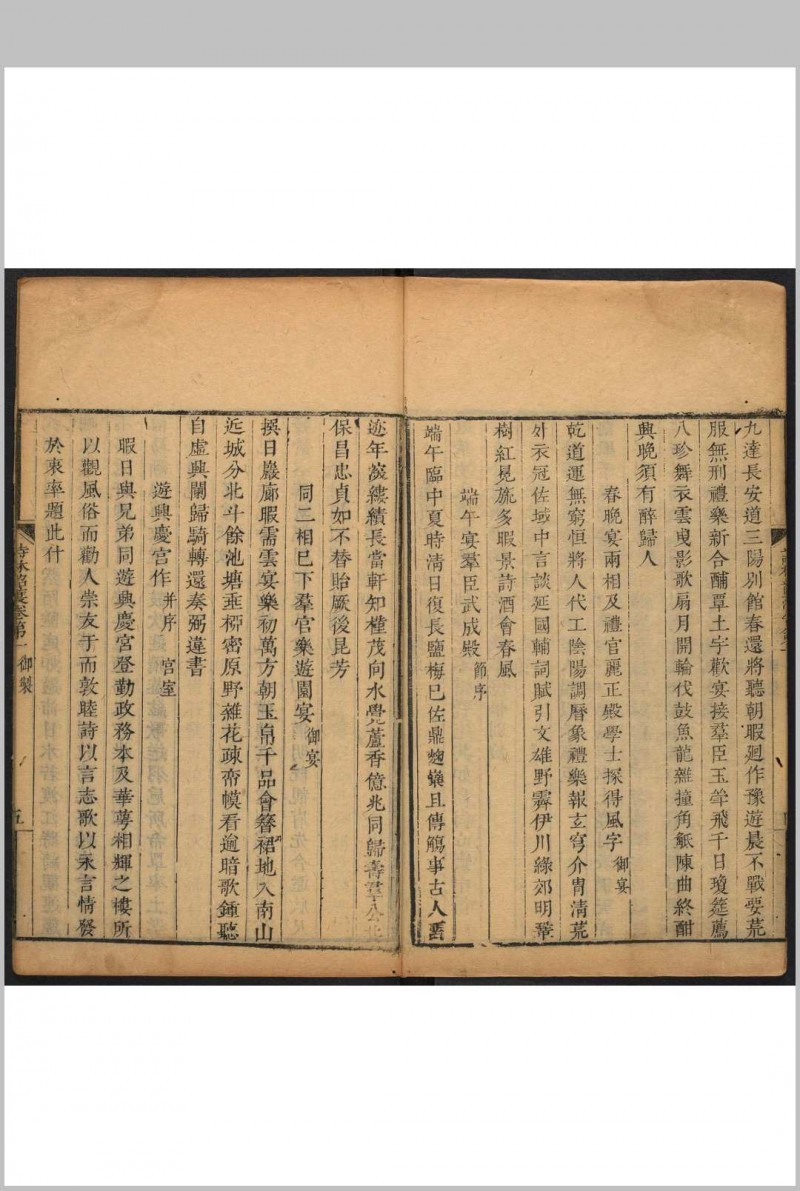 九達長安道三陽別館春還將聽朝暇廻作豫遊晨不戰要荒
服無刑禮樂新合酺覃土宇歡宴接羣臣玉斝飛千日瓊筵薦
八珍舞衣雲曳影歌扇月開輪伐鼓魚龍雜撞角觝陳曲終酣
興晚須有醉歸人
春晚宴兩相及禮官麗正殿學士探得風字 御宴
乾道運無窮恒將人代工陰陽調曆象禮樂報玄穹介冑清荒
外衣冠佐域中言談延國輔詞賦引文雄野霽伊川綠郊明鞏
樹紅冕旒多暇景詩酒會春風
端午宴羣臣武成殿 節序
端午臨中夏時清日復長鹽梅已佐鼎麴糵且傳觴事古人
迹年深縷績長當軒知槿茂向水覺蘆香億兆同歸壽羣公
保昌忠貞如不替貽厥後昆芳
同二相已下羣官樂遊園宴 御宴
撰日巖廊暇需雲宴樂初萬方朝玉帛千品會簪裾地入南山
近城分北斗餘池塘垂栁密原野雜花疎帟幙看逾暗歌鍾聽
自虛興闌歸騎轉還奏弼違書
遊興慶宮作 并序 宮室
暇日與兄弟同遊興慶宮登勤政務本及華萼相輝之樓所
以觀風俗而勸人崇友于而敦睦詩以言志歌以永言情發
於衷率題此什
卷第一 御製
五